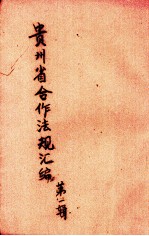 贵州省合作法规汇编
第一辑